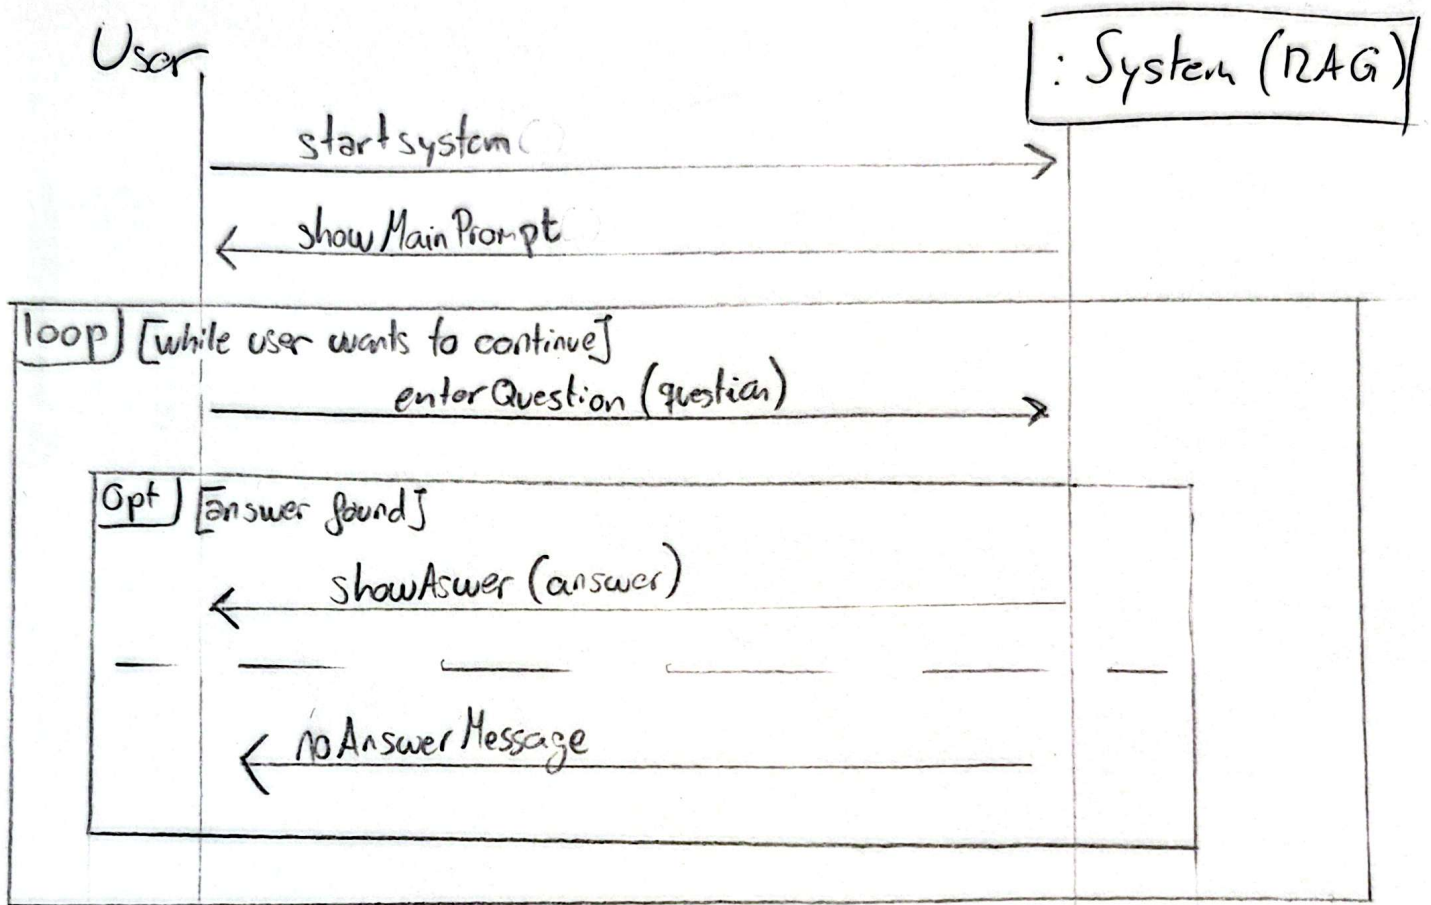 User
: System (RAG)
startsystem
showMainPrompt
loop [while user wants to continue]
enterQuestion (question)
Opt [answer found]
showAswer (answer)
noAnswerMessage